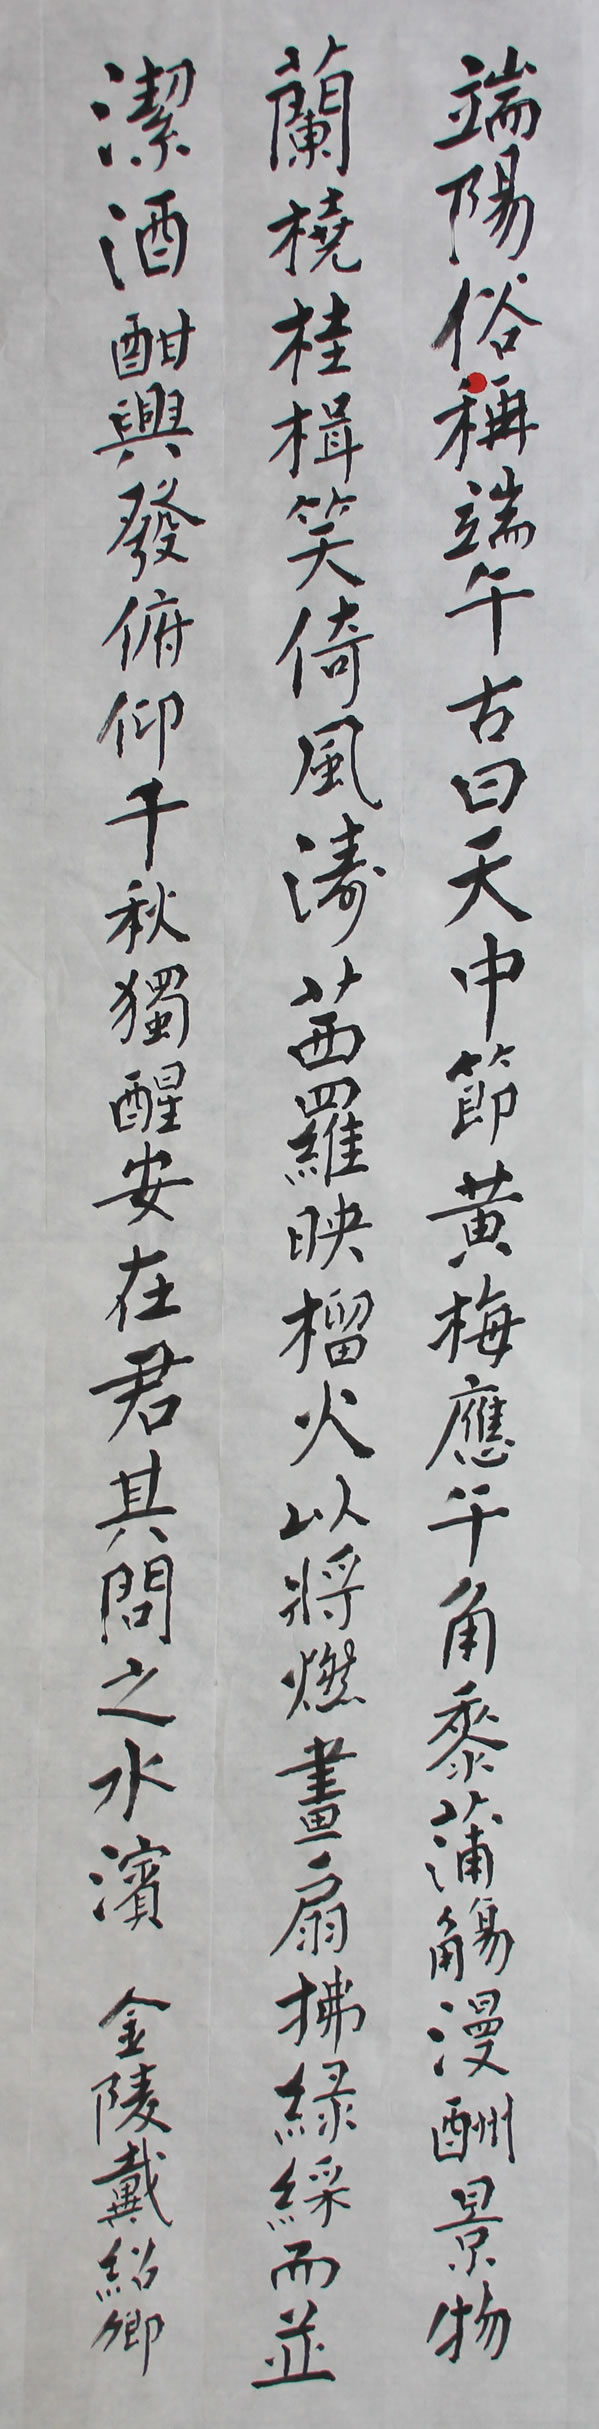 端陽俗稱端午古曰天中節黃梅應午角黍蒲觴漫酬景物
蘭橈桂楫笑倚風濤茜羅映榴火以將燃畫扇拂綠綵而並
潔酒酣興發俯仰千秋獨醒安在君其問之水濱 金陵戴紹卿